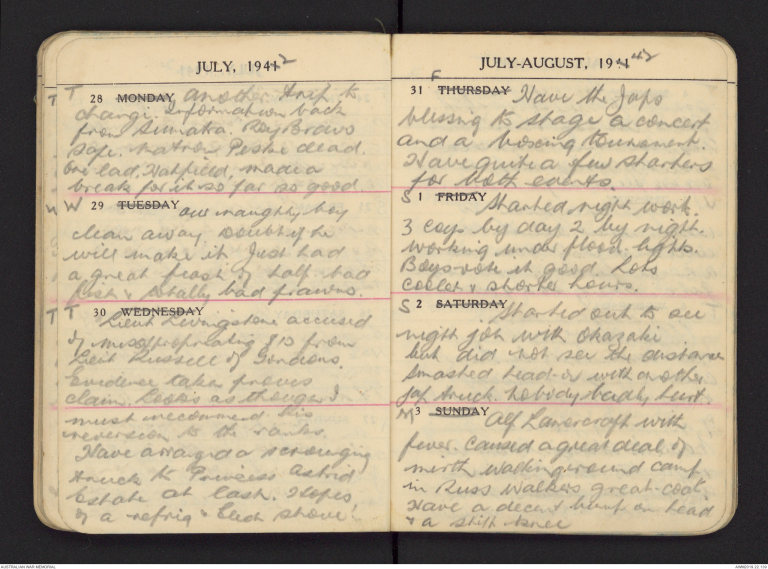 JULY, 1941 2
T T 28 MONDAY Another trip to
Changi. Information back
from Sumatra. Roy Brows
safe. Matron Peske dead.
One lad, Hatfield, made a
break for it so far so good
W W 29 TUESDAY our naughty boy
clean away. Doubt if he
will make it. Just had
a great feast of half bad
fish & totally bad prawns.
T T 30 WEDNESDAY
Lieut Livingstone accused
of misappropriating $10 from
Lieut Russell of Gordons.
Evidence taken proves
claim. Looks as though I
must recommend his
reversion to the ranks.
Have arranged a scrounging
truck to Princess Astrid
Estate at last. Hopes
of a refrig & Elec stove!
JULY-AUGUST, 1941 42
F
31 THURSDAY Have the Japs
blessing to stage a concert
and a boxing tournament.
Have quite a few starters
for both events.
S 1 FRIDAY Started night work.
3 coys by day 2 by night.
Working under flood lights.
Boys vote it good. Lots
cooler & shorter hours.
S 2 SATURDAY Started out to see
night job with Okazaki
but did not see the distance
Smashed head-on with another
Jap truck. Nobody badly hurt.
M 3 SUNDAY Alf Lancroft with
fever. Caused a great deal of
mirth walking round camp
in Russ Walkers great-coat.
Have a decent bump on head
& a stiff knee
AUSTRALIAN WAR MEMORIAL
AWM2019.22.139